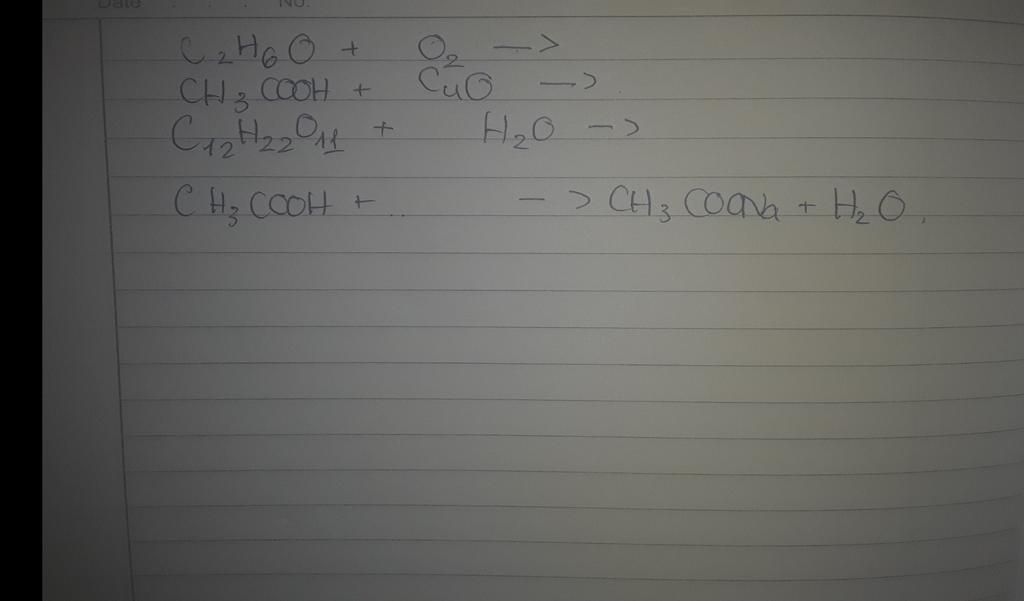 Date . . . No.
C₂H₆O + O₂ —>
CH₃COOH + CuO —>
C₁₂H₂₂O₁₁ + H₂O —>
CH₃COOH + .. —> CH₃COONa + H₂O,